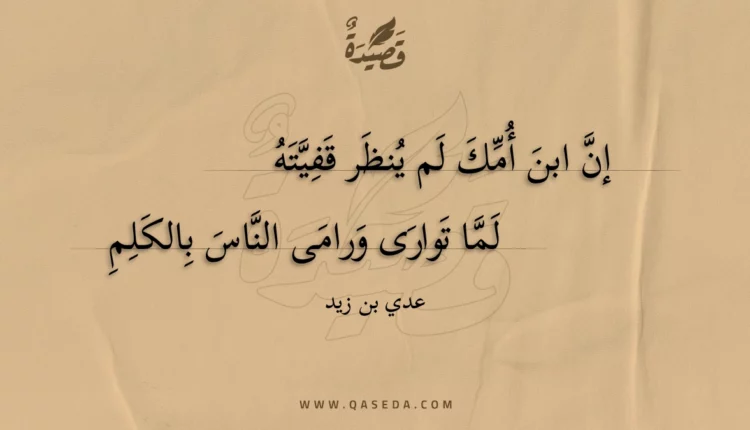 قَصِيدَةٌ
إنَّ ابنَ أُمِّكَ لَم يُنظَر قَفِيَّتَهُ
لَمَّا تَوارَى وَرامَى النَّاسَ بِالكَلِمِ
عدي بن زيد
WWW.QASEDA.COM